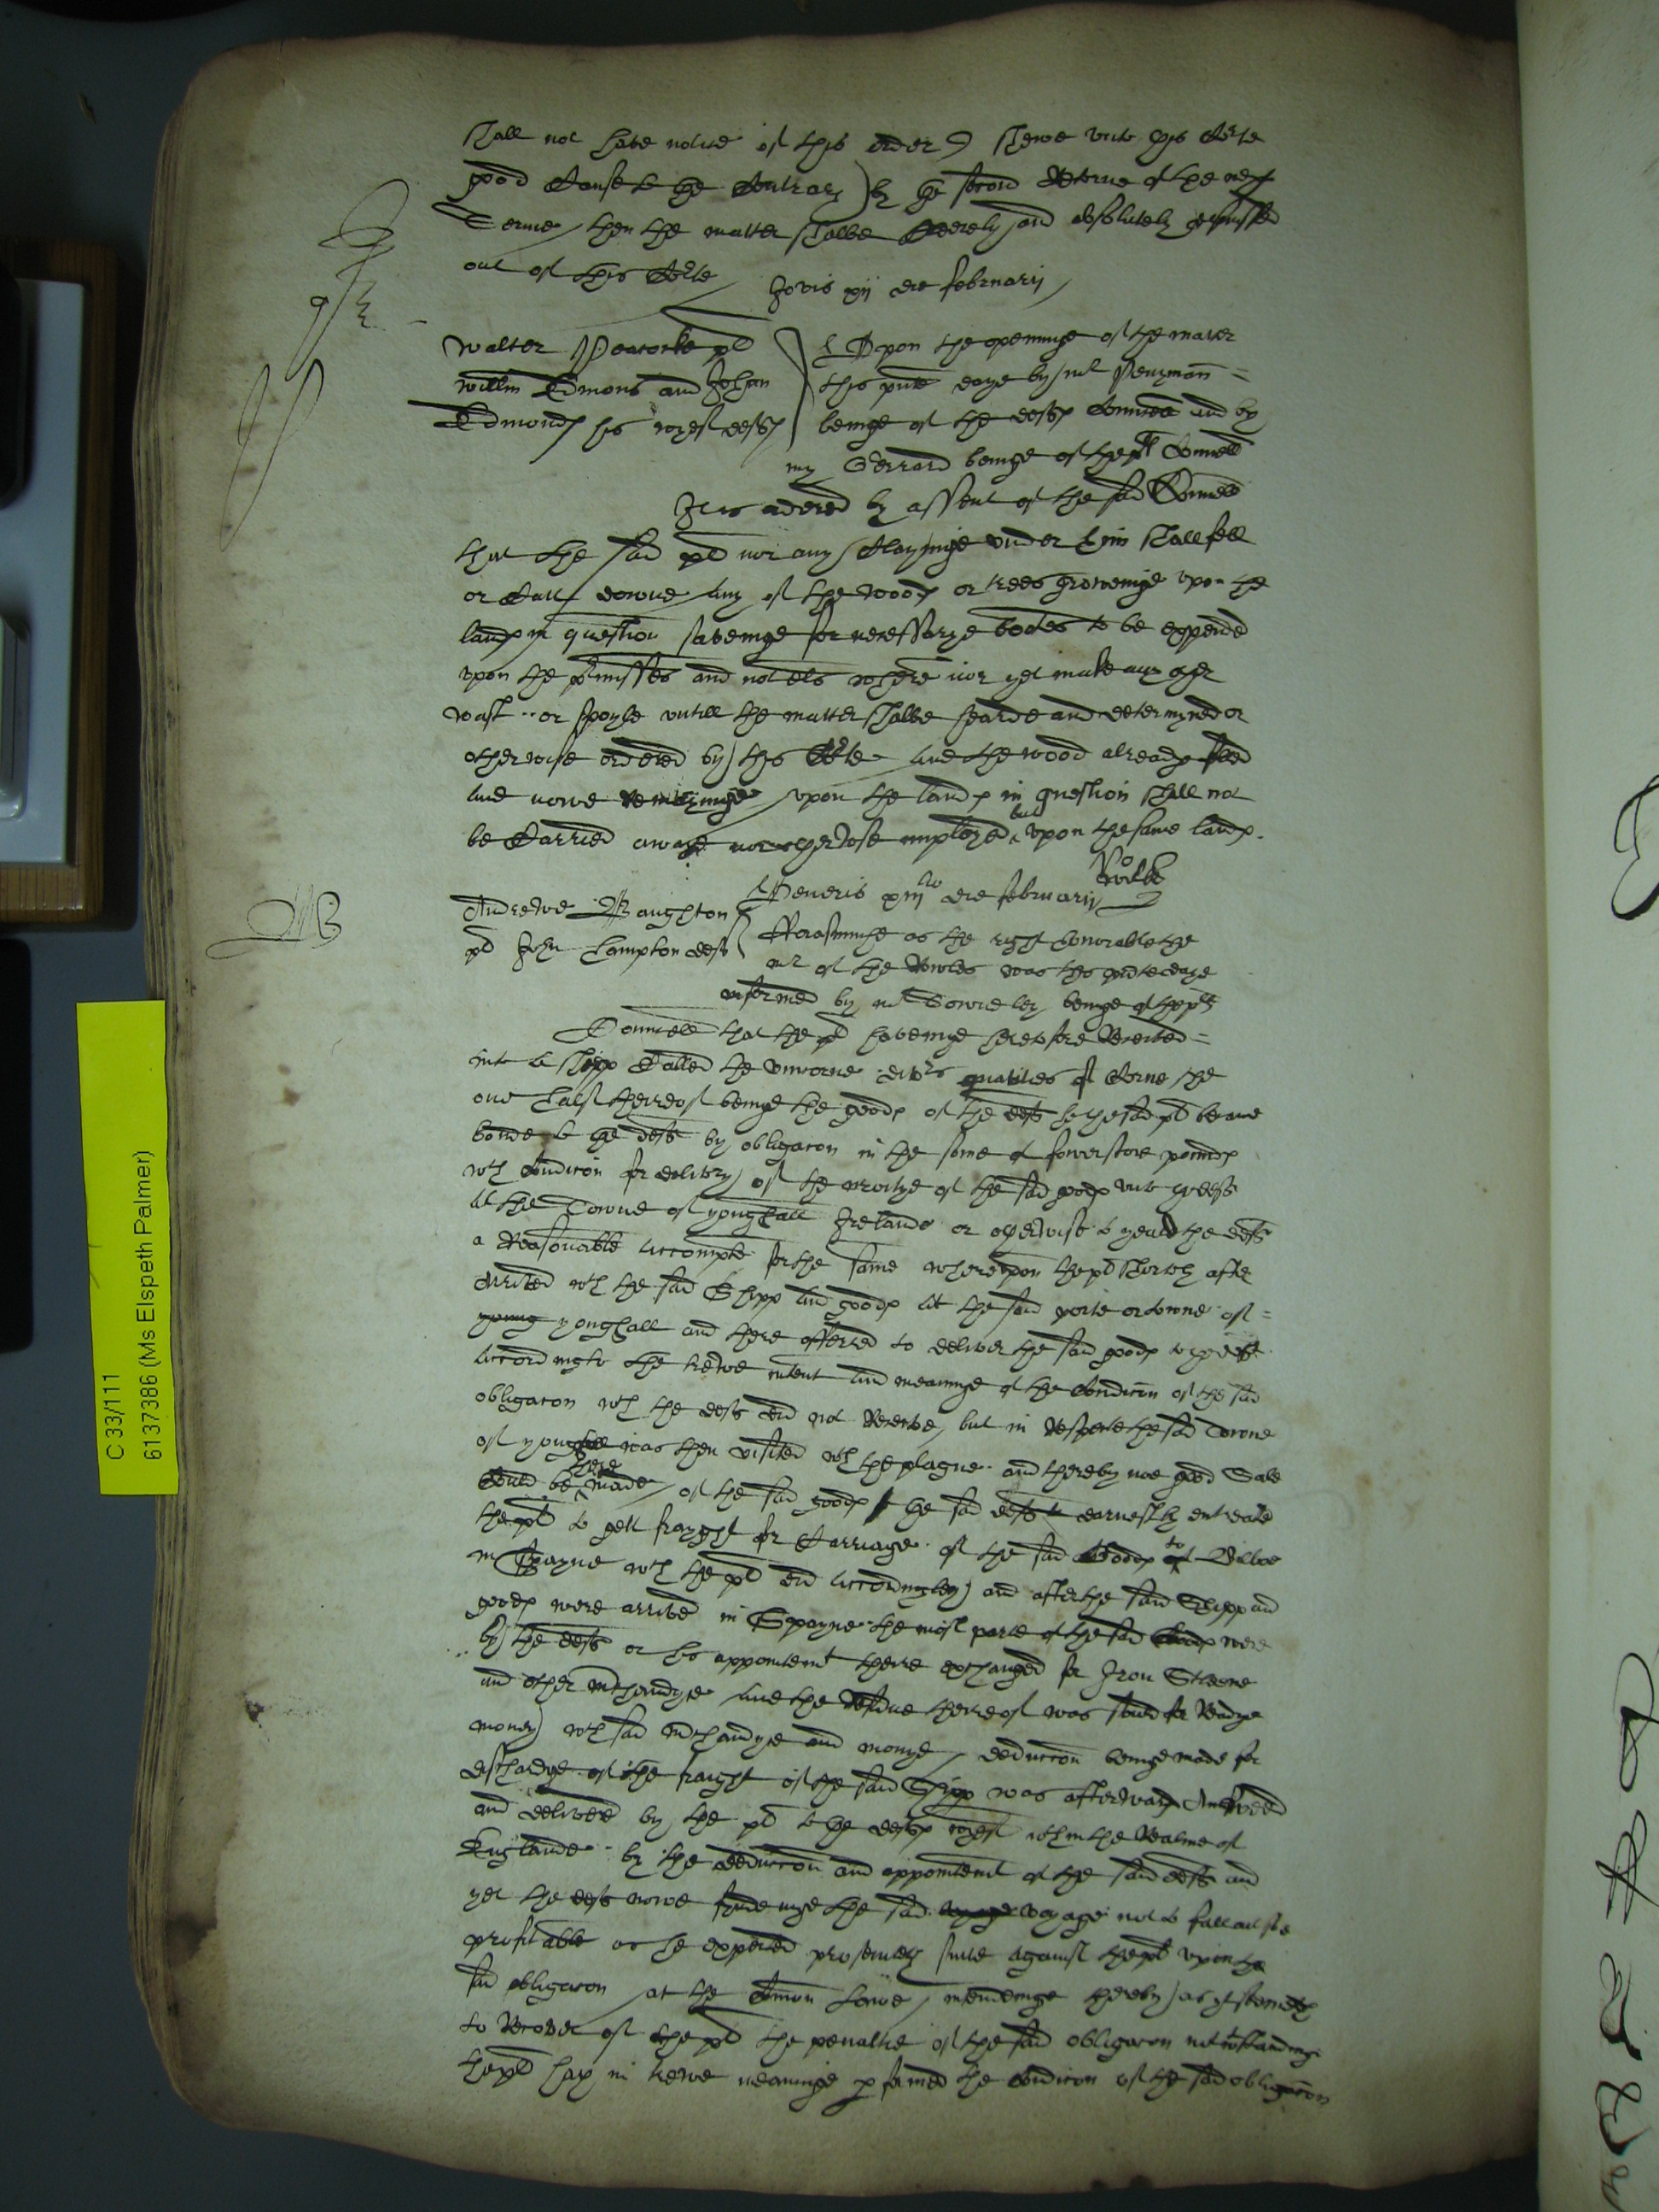 shall not have notice of this order) shewe unto this Corte
good Cause to the Contrary) by the second Retorne of the next
Terme, then the matter shalbe Cleerely and absolutely dismissed
out of this Corte
Jovis xij die februarij
Walter Peacocke pl
willm Edmons and Johan
Edmond his wyef deft
Upon the openinge of the matter
this pnte daye by mr Penyman
beinge of the deft Councell and by
mr Gerrard beinge of the pl Councell
It is ordered by assent of the said Councell
that the said pl nor any Claymynge under him shall fell
or Cutt downe any of the wood or trees groweinge upon the
land in question saveinge for necessarye bootes to be expended
upon the premisses and not els where nor yet make any other
wast or spoyle untill the matter shalbe hearde and determyned or
otherwise ordered by this Corte And the wood already felled
and nowe remayninge upon the land in question shall not
be Carried awaye nor otherwise imployed but upon the same land
Andrewe Baughton
pl John Lampton deft
Veneris xiijto die februarij
Rolles
fforasmuche as the right honorable the
mr of the Rowles was this pnte daye
informed by mr beinge of the pl
Councell that the pl haveinge heretofore Receved
into a Shipp Called the Unicorne divers quantities of Corne the
one half thereof beinge the good of the deft he the said pl became
bound to the deft by obligacon in the some of fowerscore pound
wth Condicon for delivery of the moitye of the said good unto the deft
at the Towne of younghall Ireland or otherwise to yeald the deft
a Reasonable accompte for the same whereupon the pl shortely after
Arrived wth the said Shipp and good at the said porte or towne of
young younghall and there offered to deliver the said good to the deft
According to the trewe intent and meaninge of the Condicon of the said
obligacon wch the deft did not Receive, but in Respecte the said Towne
of younghall was then visited wth the plague and thereby noe good Sale
Could be there made of the said good the said deft earnestly entreated
the pl to gett frayght for Carriage of the said Good to Bilboe
in Spayne wch the pl did accordingley) and after the said Shipp and
good were arrived in Spayne the most parte of the said good were
by the deft or his appointemt there exchanged for Iron
and other mchandyze And the Residue thereof was sould for Readye
money) wch said mchandyze and monye, deduccon beinge made for
discharge of the fraight of the said Shipp was afterward Answered
and delivered by the pl to the deft wyef wthin the Realme of
England by the direccon and appointemt of the said deft and
yet the deft nowe findeinge the said voyage voyage not to fall out soe
profitable as he expected prosecuteth suite against the pl upon the
said obligacon at the Comon Lawe, intendeinge thereby) as yt seemeth
to Recover of the pl the penaltie of the said obligacon notwthstandinge
the pl hath in trewe meaninge pformed the Condicon of the said obligacon
C 33/111
61373886 (Ms Elspeth Palmer)